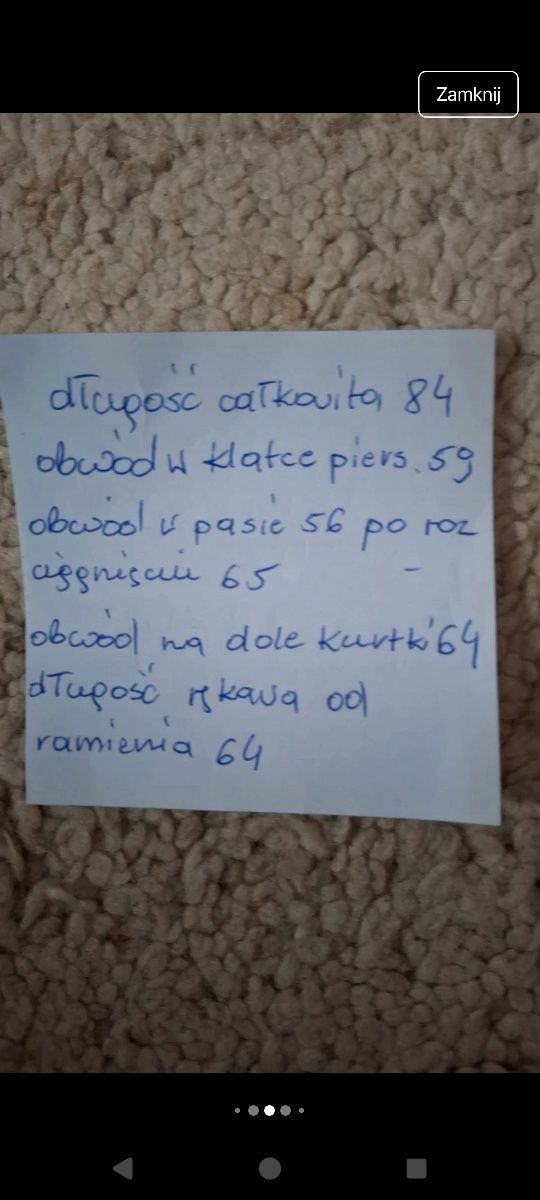 Zamknij
długość całkowita 84
obwód w klatce piers. 59
obwód w pasie 56 po roz
ciągnięciu 65 -
obwód na dole kurtki 64
długość rękawa od
ramienia 64